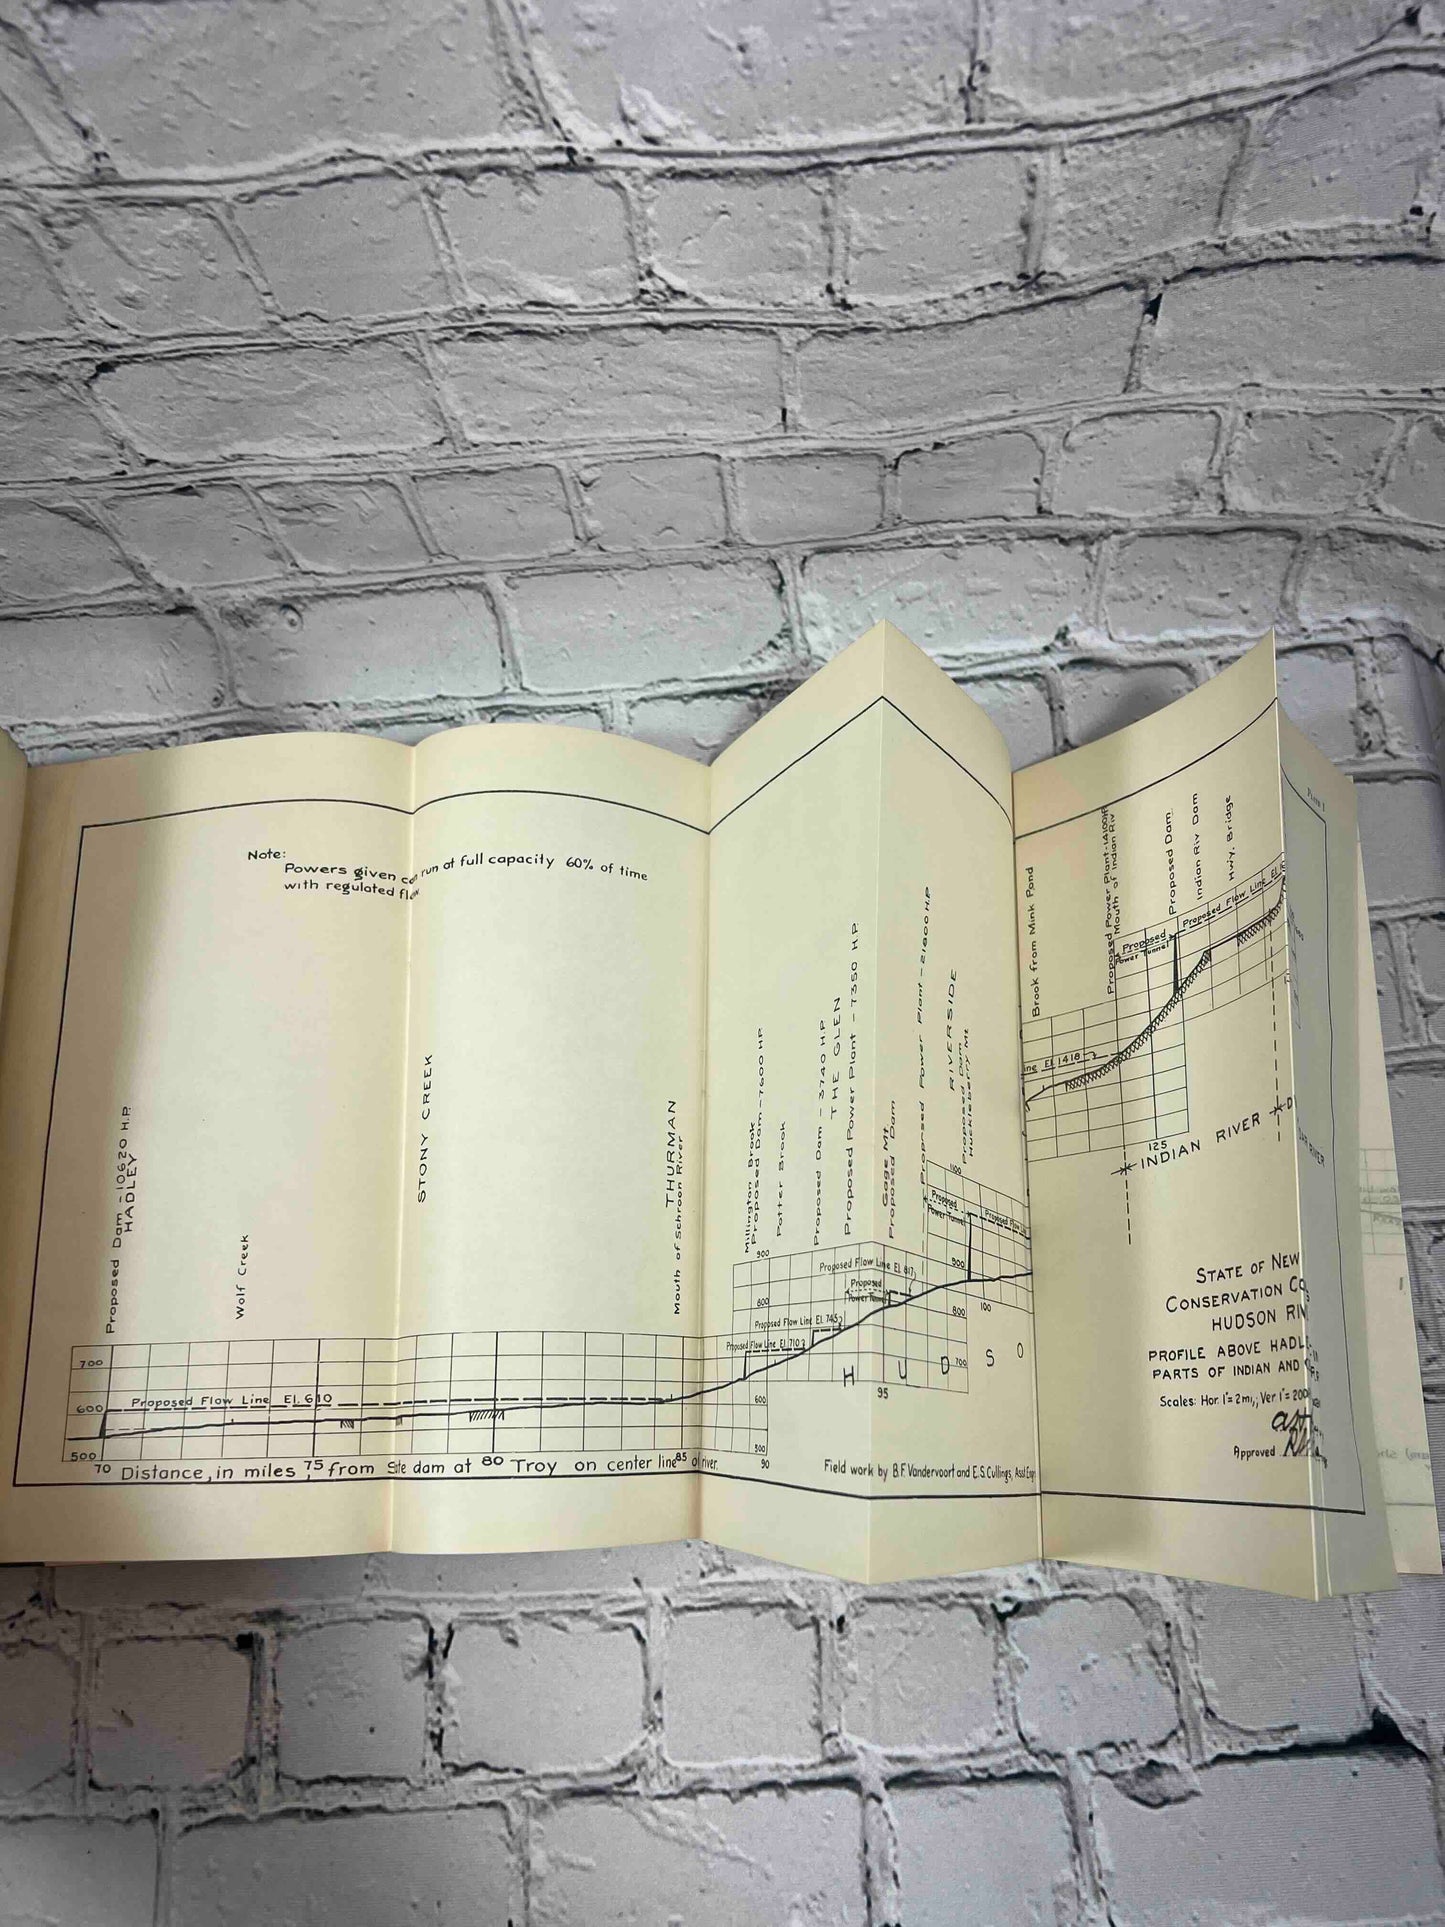 Note:
Powers given can run at full capacity 60% of time
with regulated
Proposed Dam - 10620 H.P.
HADLEY
Wolf Creek
STONY CREEK
THURMAN
Mouth of Schroon River
Millington Brook
Proposed Dam - 7600 HP
Potter Brook
Proposed Dam - 3740 H.P.
THE GLEN
Proposed Power Plant - 7350 H.P.
Gage Mt.
Proposed Dam
Proposed Power Plant - 21800 H.P.
RIVERSIDE
Proposed Dam
Huckleberry Mt.
Brook from Mink Pond
Proposed Power Plant - 14100
Mouth of Indian Riv
Proposed Dam
Indian Riv Dam
Hwy. Bridge
Proposed Flow Line El.
Proposed
Power Tunnel
ine El. 1418
125
INDIAN RIVER
D
1100
Proposed
Power Tunnel
Proposed Flow Line
900
900
Proposed Flow Line El. 817
Proposed
Power Tunnel
800
800
Proposed Flow Line El. 745
Proposed Flow Line El. 710
100
700
700
HUDSO
95
Proposed Flow Line El. 610
600
600
500
500
70 75 80 85 90
Distance, in miles, from State dam at Troy on center line of river.
Field work by B.F. Vandervoort and E.S. Cullings, Asst Engr
STATE OF NEW
CONSERVATION CO
HUDSON RIV
PROFILE ABOVE HADL
PARTS OF INDIAN AND
Scales: Hor. 1"= 2mi.; Ver. 1"= 200
Approved